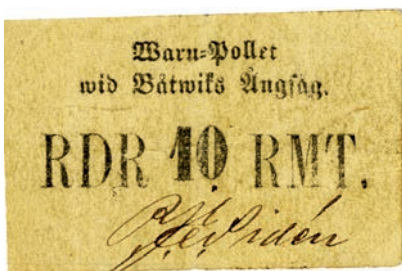 Waru-Pollet
wid Båtwiks Ångsåg.
RDR 10 RMT.